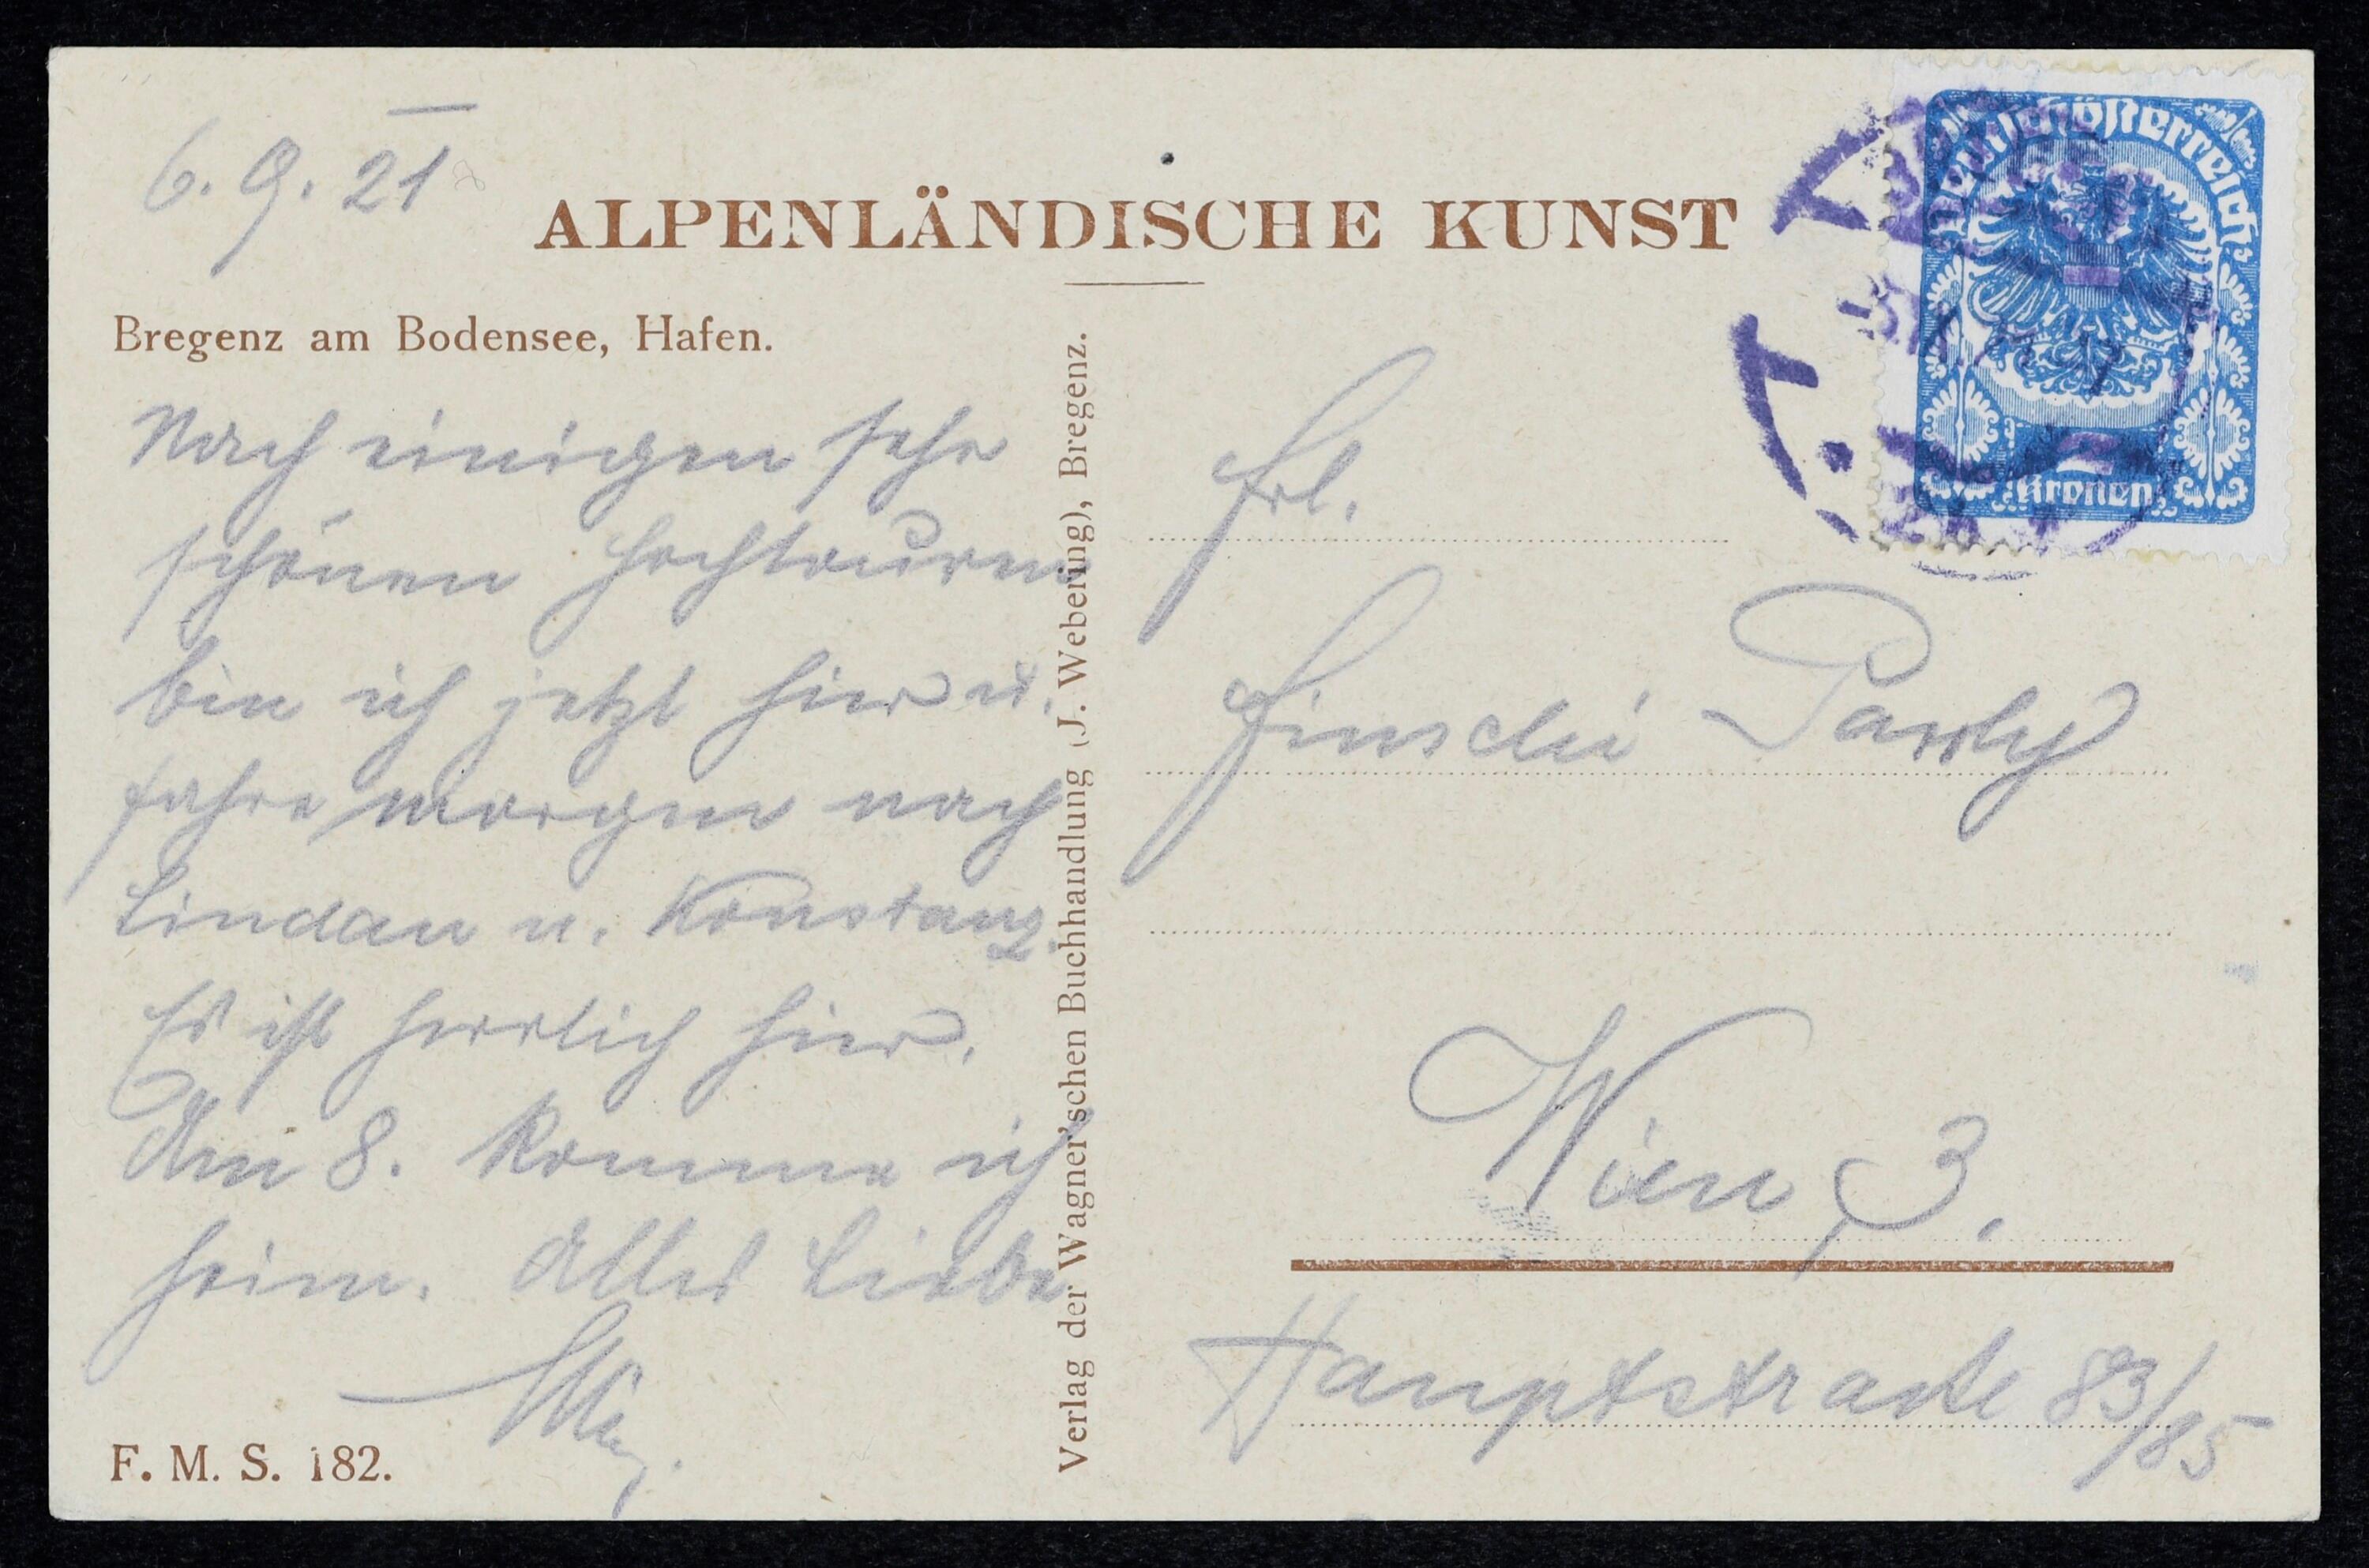 6. 9. 21
ALPENLÄNDISCHE KUNST
Bregenz am Bodensee, Hafen.
Nach einigen sehr
schönen Hochtouren
bin ich jetzt hier u.
fahre morgen nach
Lindau u. Konstanz.
Es ist herrlich hier.
Am 8. komme ich
heim. Alles Liebe
F. M. S. 182.
Verlag der Wagner'schen Buchhandlung (J. Webering), Bregenz.
Deutschösterreich
Kronen
Frl.
Wien, 3.
Hauptstrasse 83/85